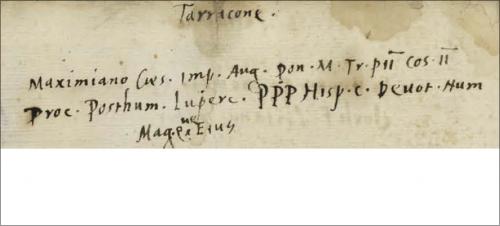 Tarracone.
Maximiano Cæs. Imp. Aug. Pon. M. Tr. PII Cos II
Proc. Posthum. Luperc. PPP Hisp. C. Devot. Num
Mag. Eius